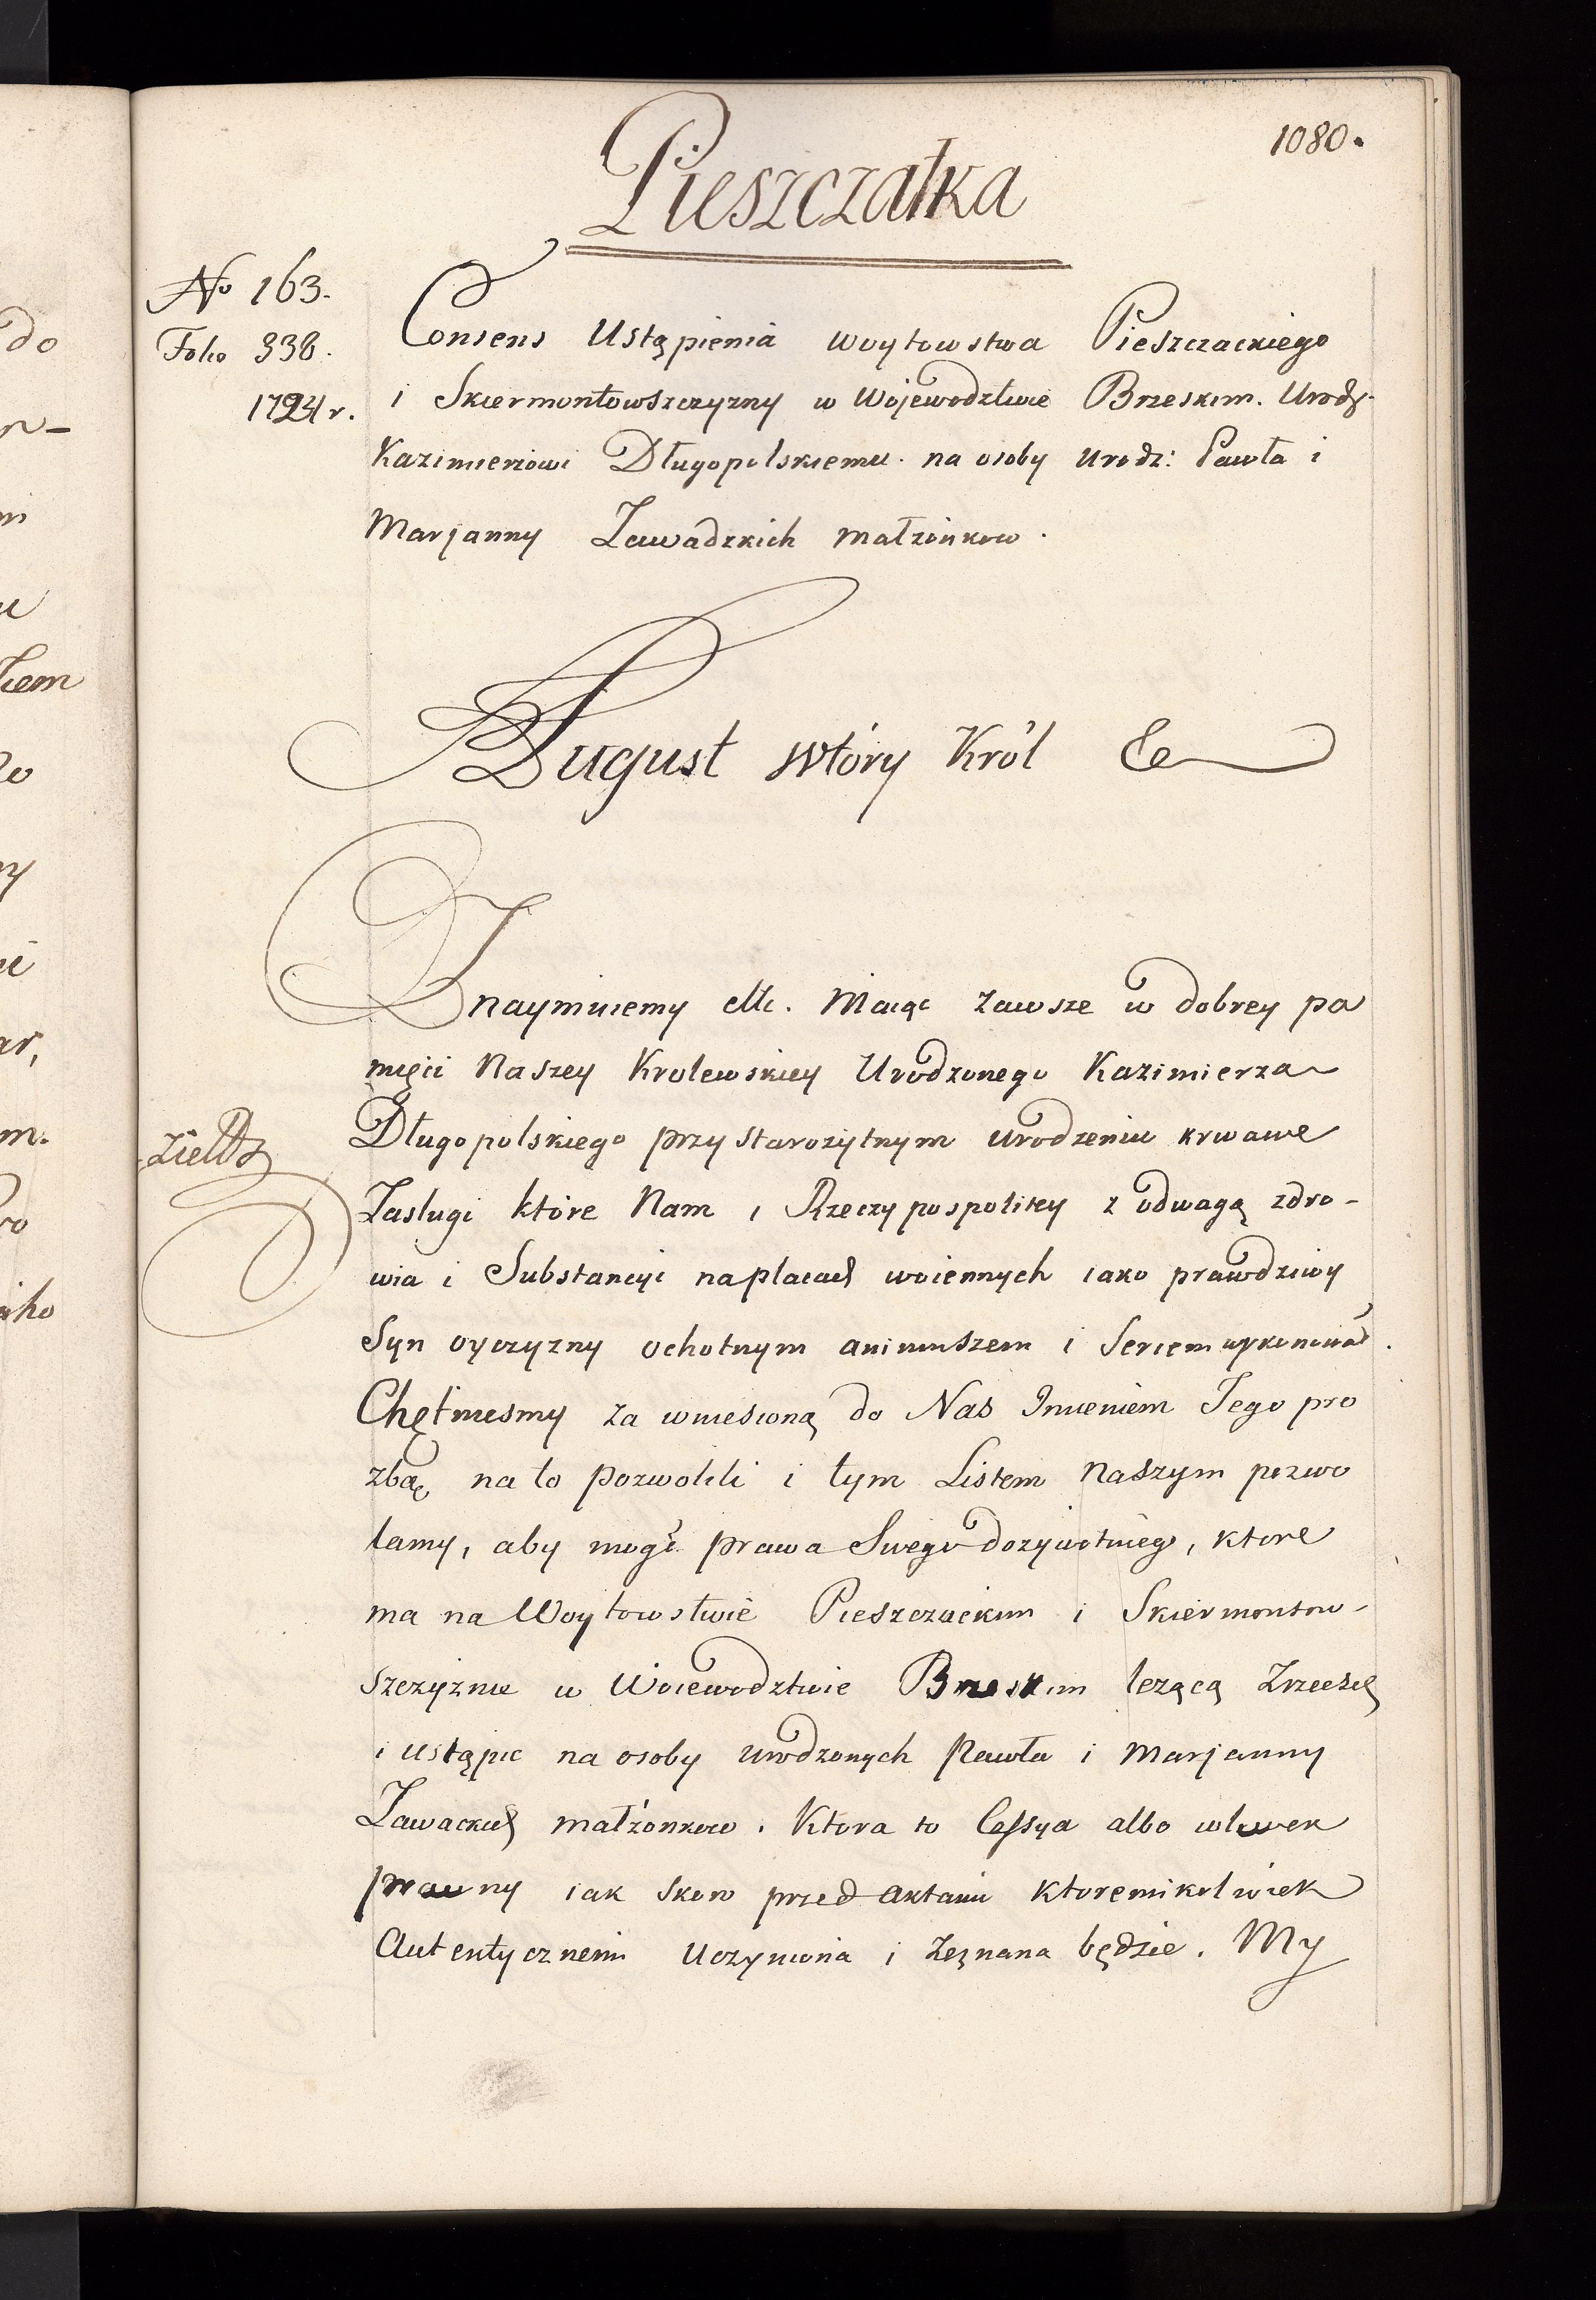 1080.
Pieszczatka
No 163.
Folio 338.
1724 r.
Consens Ustąpienia woytowstwa Pieszczackiego
i Skiermontowszczyzny w Wojewodztwie Brzeskim. Urodz.
Kazimierzowi Długopolskiemu. na osoby urodz: Pawła i
Marjanny Zawadzkich małżonkow.
August wtóry Król &
Znaymuiemy etc. Maiąc zawsze w dobrey pa
mięci Naszey Krolewskiey Urodzonego Kazimierza
Długopolskiego przy starożytnym urodzeniu krwawe
Zasługi które Nam i Rzeczypospolitey z odwagą zdro-
wia i Substancyi na placach woiennych iako prawdziwy
Syn oyczyzny ochotnym animuszem i sercem wykonował.
Chętnieśmy za wniesioną do Nas Imieniem Jego pro
zbą na to pozwolili i tym Listem Naszym pozwo
lamy, aby mogł prawa Swego dożywotniego, ktore
ma na Woytowstwie Pieszczackim i Skiermontow-
szczyznie w Woiewodztwie Brzeskim leżącą Zrzec się
i ustąpic na osoby urodzonych Pawła i Marjanny
Zawackich małżonkow. Ktora to Cessya albo wlewek
prawny iak skoro przed aktami ktoremikolwiek
Autentycznemi uczyniona i zeznana będzie. My